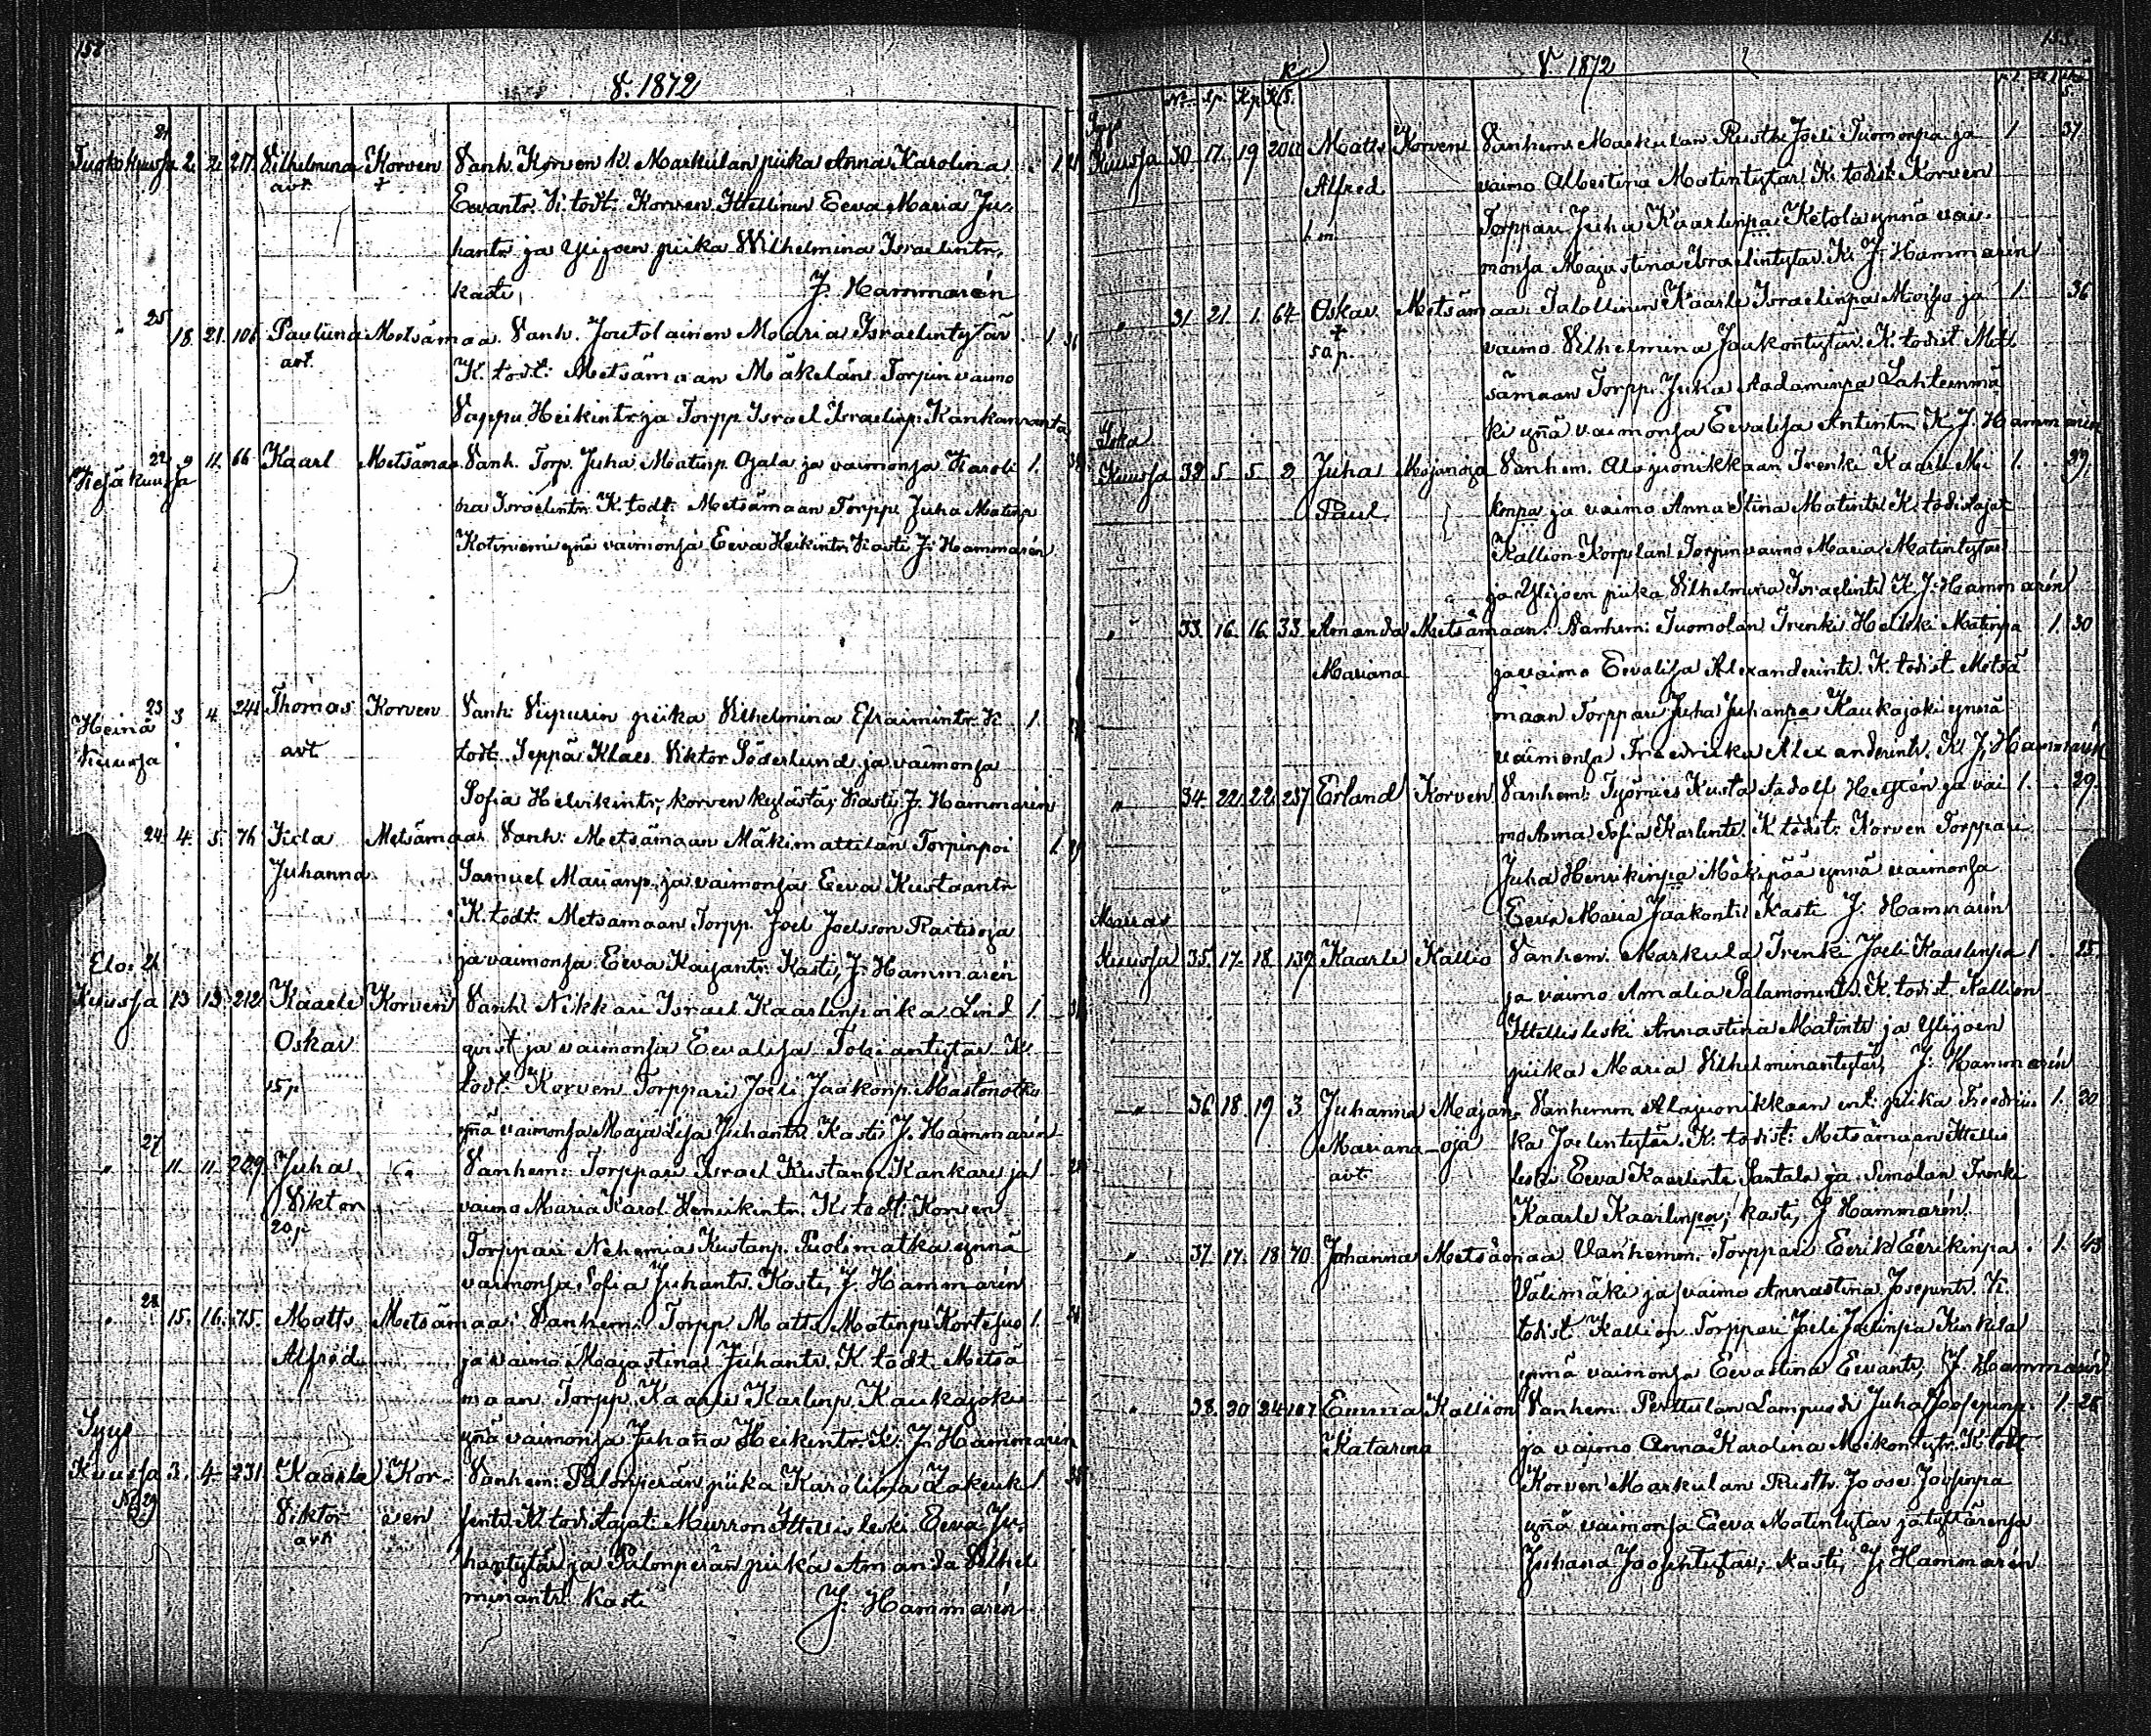 158
V. 1872
21
Tuokokuusfa 2. 2. 217. Vilhelmina Korven Vanh. Korven k. Markulan piika Anna Karolina 1. 21
avt. + Eevantr. K. todt: Korven Ittellinen Eeva Maria Ju-
hantr. ja Ylijoen piika Wilhelmina Israelintr.
kasti, J. Hammarén
25
" 18. 21. 106 Paulina Metsämaa. Vanh. Joutolainen Maria Israelintytär 1. 36
avt. K. todt: Metsämaan Mäkelän Torpin vaimo
Vappu Heikintr. ja Torpp. Israel Israelinp. Kankaanranta
22
Kesäkuusfa 9 11. 66 Kaarl Metsämaa Vanh. Torp. Juha Matinp. Ojala ja vaimonsa Karoli 1.
na Israelintr. K. todt: Metsämaan Torpp. Juha Matinp.
Kotiniemi ynä vaimonsa Eeva Heikintr. Kasti J. Hammarén
23
Heinä 3 4. 244 Thomas Korven Vanh: Viipurin piika Vilhelmina Efraimintr. K. 1.
Kuusfa avt todt. Seppä Klaes Viktor Söderlund ja vaimonsa
Sofia Helvikintr, korven kylästä, Kasti J. Hammarén
24. 4. 5. 76 Iida Metsämaa Vanh: Metsämaan Mäkimattilan Torpinpoi 1.
Juhanna Samuel Marianp. ja vaimonsa Eeva Kustaantr.
K. todt: Metsämaan Torpp. Joel Joelsson
ja vaimonsa Eeva Kajsantr. Kasti, J. Hammarén
Elo. 26
Kuusfa 13 13. 212 Kaarle Korven Vanh Nikkari Israel Kaarlenpoika Lind 1.
Oskar qvist ja vaimonsa Eevalisa Tobiantytär K.
15p todt: Korven Torppari Joeli Jaakonp. Mastonotko
ynä vaimonsa Maja Lisa Juhantr. Kasti J. Hammarén
27
" 11. 11. 209 Juha " Vanhem: Torppari Israel Kustanp. Kankare ja
Viktor vaimo Maria Karol. Henrikintr. K. todt: Korven
20p Torppari Nehemia Kustanp. Puolimatka ynnä
vaimonsa Sofia Juhantr. Kasti, J. Hammarén
28
" 15. 16. 75. Matts Metsämaa Vanhem: Torpp. Matts Matinp. Kortesuo 1.
Alfred ja vaimo Majastina Juhantr. K. todt. Metsä
maan Torpp. Kaarle Karlinp. Kaukajoki
ynä vaimonsa Juhaña Heikintr. K. J. Hammarén
Syys
Kuusfa 3. 4. 231 Kaarle Kor- Vanhem: Palonperän piika Karolina Zakeuk 1.
29 Viktor ven sentr. K. todistajat: Murron Ittellisleski Eeva Ju-
avt hantytär ja Palonperän piika Amanda Vilhel
minantr. Kasti J. Hammarén
K V 1872
No. Sp. Kp. K.S.
Syys
Kuusfa 30. 17. 19 204 Matts Korven Vanhem. Markulan Rusth. Joeli Tuomonpa ja 1. 37
Alfred vaimo Albertina Matintytär. K. todist. Korven
Torppari Juha Kaarlenpa Ketola ynnä vai-
monsa Majastina Israelintytär. K. J. Hammarén
" 31. 21. 1. 64. Oskar Metsämaa Talollinen Kaarle Israelinpa Moisio ja 1. 36
+ vaimo Vilhelmina Jaakontytär. K. todist. Met-
5 a p. sämaan Torpp. Juha Aadaminpa Lähteenmä
ki ynä vaimonsa Eevalisa Antintr. K. J. Hammarén
Loka
Kuusfa 32 5. 5. 2 Juha Majanoja Vanhem. Alajuonikkaan Trenki Kaarle Mi 1. 29.
Paul konpa ja vaimo Anna Stina Matintr. K. todistajat
Kallion Korpelan Torpin vaimo Maria Matintytär
ja Ylijoen piika Vilhelmina Israelintr. K. J. Hammarén
" 33. 16. 16. 33 Amanda Metsämaan. Vanhem: Tuomolan Trenki Heikki Matinpa 1. 30
Mariana ja vaimo Eevalisa Alexanderintr. K. todist. Metsä
mäan Torppari Juha Juhanpa Kaukajoki ynnä
vaimonsa Freedriika Alexanderintr. K. J. Hammarén
" 34. 22. 22. 257 Erland Korven Vanhem: Työmies Kusta Aadolf Hellstén ja vai 1. 29.
mo Anna Sofia Karlentr. K. todist: Korven Torppari
Juha Henrikinpa Mäkipää ynnä vaimonsa
Eeva Maria Jaakontr. Kasti J. Hammarén
Marras
Kuusfa 35. 17. 18. 137 Kaarle Kallio Vanhem. Markula Trenki Joeli Kaarlenpa 1. 25.
ja vaimo Amalia Salamonintr. K. todist. Kallion
Ittellisleski Annastina Matintr. ja Ylijoen
piika Maria Vilhelminantytär, J. Hammarén
" 36. 18. 19 3. Juhanna Majan- Vanhemm. Alajuonikkaan ent: piika Freedrii 1. 30
Mariana -oja ka Joelintytär. K. todist: Metsämaan Ittellis
avt. leski Eeva Kaarlentr. Santala ja Simolan Trenki
Kaarle Kaarlinpa; kasti, J. Hammarén
" 37. 17. 18 70. Johanna Metsämaa Vanhemm. Torppari Eerik Eerikinpa. 1. 43
Välimäki ja vaimo Annastina Josepintr. K.
todist. Kallion Torppari Joeli Joelinpa Kurkela
ynnä vaimonsa Eevastina Eevantr. J. Hammarén
" 38. 20. 24 107 Emma Kallion Vanhem. Perttulan Lampuodi Juha Joosepinp. 1. 28
Katarina ja vaimo Anna Karolina Mikontytr. K. todt.
Korven Markulan Rusth. Joose Joosenpa
ynä vaimonsa Eeva Matintytär ja tyttärensä
Juhana Joosentytär, Kasti, J. Hammarén